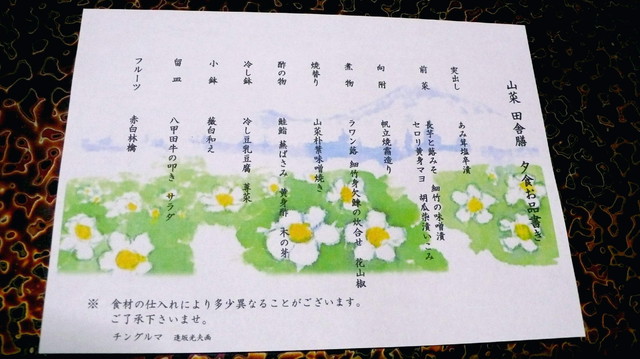 山菜 田舎膳 夕食お品書き
突出し あみ茸塩辛漬
前菜 長芋と蕗みそ 細竹の味噌漬
セロリ黄身マヨ 胡瓜柴漬いこみ
向附 帆立焼霜造り
煮物 ラワン蕗 細竹身欠鰊の炊合せ 花山椒
焼替り 山菜朴葉味噌焼き
酢の物 鮭鮨 蕪ばさみ 黄身酢 木の芽
冷し鉢 冷し豆乳豆腐 蓴菜
小鉢 薇白和え
留皿 八甲田牛の叩き サラダ
フルーツ 赤白林檎
※ 食材の仕入れにより多少異なることがございます。
ご了承下さいませ。
チングルマ 逢坂光夫画